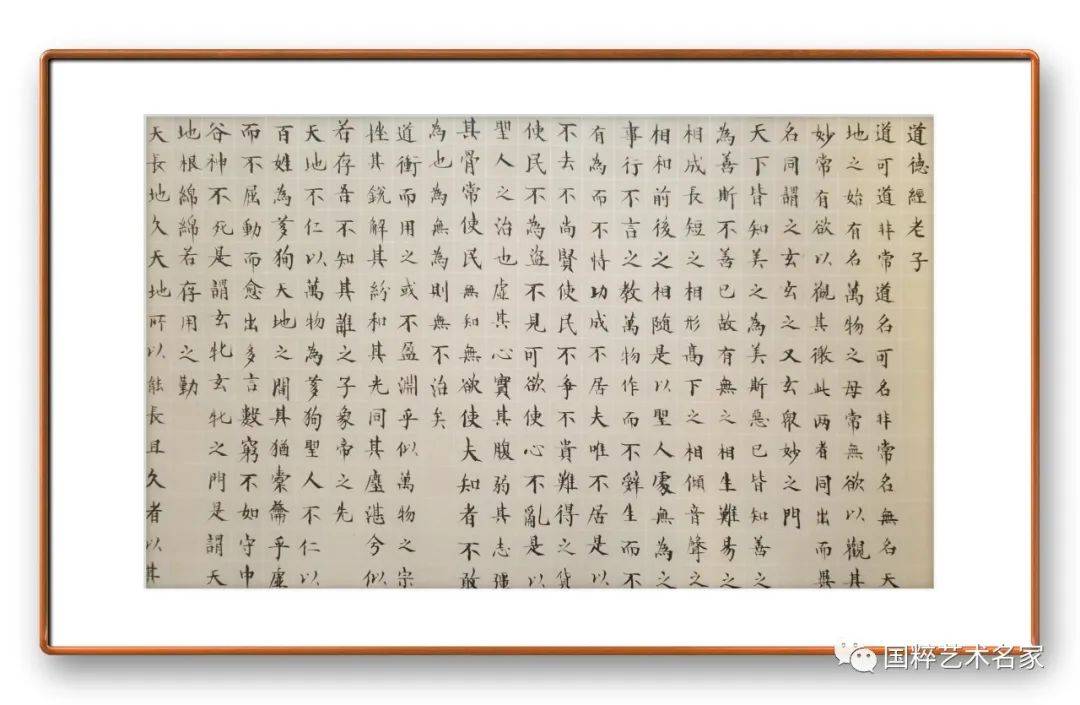 道德經老子
道可道非常道名可名非常名無名天
地之始有名萬物之母常無欲以觀其
妙常有欲以觀其徼此两者同出而異
名同謂之玄玄之又玄眾妙之門
天下皆知美之為美斯惡已皆知善之
為善斯不善已故有無之相生難易之
相成長短之相形高下之相傾音聲之
相和前後之相隨是以聖人處無為之
事行不言之教萬物作而不辭生而不
有為而不恃功成不居夫唯不居是以
不去不尚賢使民不爭不貴難得之貨
使民不為盗不見可欲使心不亂是以
聖人之治也虛其心實其腹弱其志彊
其骨常使民無知無欲使夫知者不敢
為也為無為則無不治矣
道衝而用之或不盈淵乎似萬物之宗
挫其銳解其紛和其光同其塵湛兮似
若存吾不知其誰之子象帝之先
天地不仁以萬物為芻狗聖人不仁以
百姓為芻狗天地之間其猶橐籥乎虛
而不屈動而愈出多言數窮不如守中
谷神不死是謂玄牝玄牝之門是謂天
地根綿綿若存用之勤
天長地久天地所以能長且久者以其
国粹艺术名家